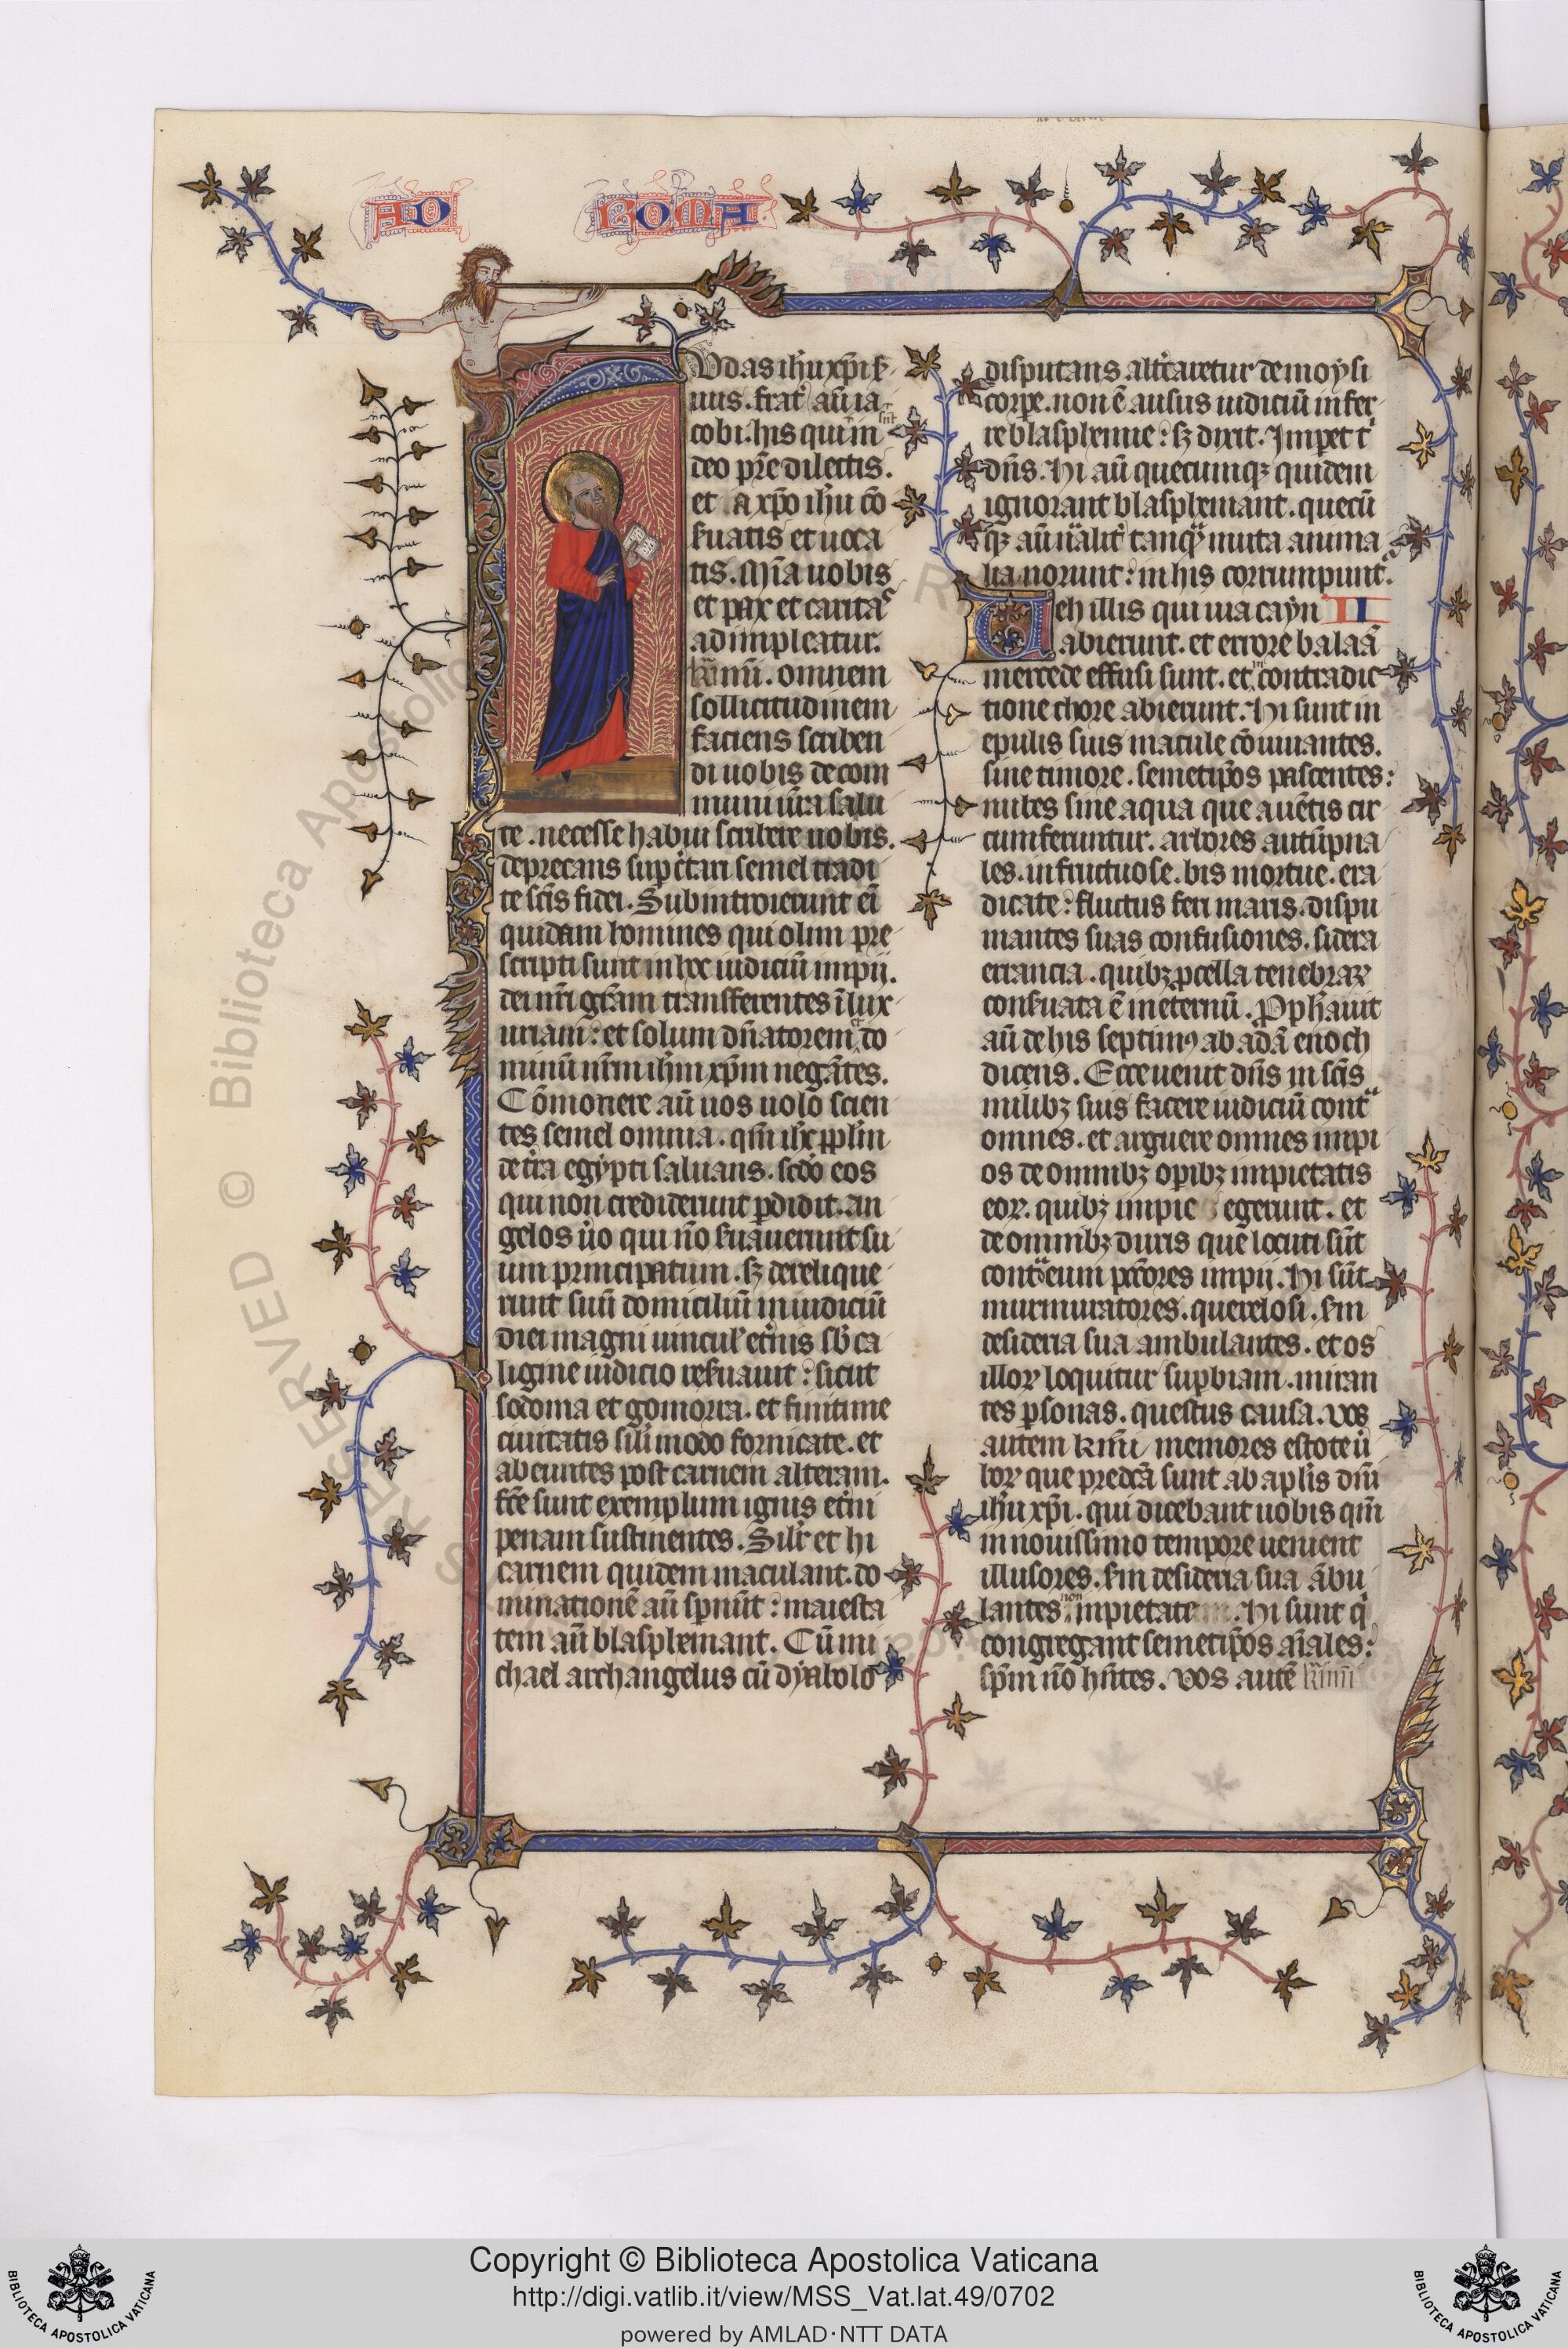 AD ROMA
Vdas ihu xpi s̄
uus. frat̉ au̅ ia
cobi. his qui in
sn̅t
deo pr̅e dilectis.
et a xpo ihu co̅
s̄uatis et uoca
tis. M̅ia uobis
et pax et caritas
adimpleatur.
kr̅mi. omnem
sollicitudinem
faciens scriben
di uobis de com
muni ur̅a salu
te. necesse habui scribere uobis.
deprecans sup cer̅tari semel tradi
te sc̅is fidei. Subintroierunt ei̅
quidam homines qui olim pre
scripti sunt in hoc iudiciu̅ impij.
dei nr̅i gr̅am transferentes i̅ lux
uriam: et solum dn̅atorem et do
minu̅ nr̅m ihm xpm nega̅tes.
Co̅monere au̅ uos uolo scien
tes semel omnia. qm̅ ihc pplm
de tr̅a egypti saluans. scdo eos
qui non crediderunt pdidit. an
gelos u̅o qui no̅ s̄uauerunt su
um principatum. sꝫ derelique
runt suu̅ domiciliu̅ in iudiciu̅
diei magni uincul̕ et̉nis sb̅ ca
ligine iudicio res̄uauit: sicut
sodoma et gomorra. et finitime
ciuitatis sili̅ modo fornicate. et
abeuntes post carnem alteram.
fc̅e sunt exemplum ignis et̉ni
penam sustinentes. Silr̅ et hi
carnem quidem maculant. do
minatione̅ au̅ spnu̅t: maiesta
tem au̅ blasphemant. Cu̅ mi
chael archangelus cu̅ dyabolo
disputans alt̉caretur de moysi
corpe. non e̅ ausus iudiciu̅ infer
re blasphemie: sꝫ dixit. Impet t̉
dn̅s. Hi au̅ quecumqꝫ quidem
ignorant blasphemant. quecu̅
qꝫ au̅ nāalit̉ tanqᷓ muta anima
lia norunt: in his corrumpunt̉.
Ueh illis qui uia cayn II
abierunt. et errore balaa̅
mercede effusi sunt. et in contradic
tione chore abierunt. Hi sunt in
epulis suis macule co̅uiuantes.
sine timore. semetip̅os pascentes:
nubes sine aqua que a uentis cir
cumferuntur. arbores autu̅pna
les. infructuose. bis mortue. era
dicate: fluctus feri maris. dispu
mantes suas confusiones. sidera
errancia. quibꝫ pcella tenebraꝝ
cons̄uata e̅ in eternu̅. Pphauit
au̅ de his septimꝰ ab ada̅ enoch
dicens. Ecce uenit dn̅s in sc̅is
milibꝫ suis facere iudiciu̅ contᷓ
omnes. et arguere omnes impi
os de omnibꝫ opibꝫ impietatis
eoꝝ. quibꝫ impie egerunt. et
de omnibꝫ duris que locuti su̅t
contᷓ eum pcc̅ores impii. Hi su̅t
murmuratores. querelosi. sm
desideria sua ambulantes. et os
illoꝝ loquitur supbiam. miran
tes psonas. questus causa. Vos
autem kr̅mi memores estote u̅
boꝝ que predc̅a sunt ab aplis dn̅i
ihu xpi. qui dicebant uobis qm̅
in nouissimo tempore uenient
illusores. sm desideria sua a̅bu
lantes non impietate. Hi sunt q̉
congregant semetip̅os ai̅ales:
spm no̅ hn̅tes. Vos aute̅ kr̅mi
© Biblioteca Apostolica
Copyright © Biblioteca Apostolica Vaticana
http://digi.vatlib.it/view/MSS_Vat.lat.49/0702
powered by AMLAD·NTT DATA
BIBLIOTECA APOSTOLICA VATICANA
BIBLIOTECA APOSTOLICA VATICANA